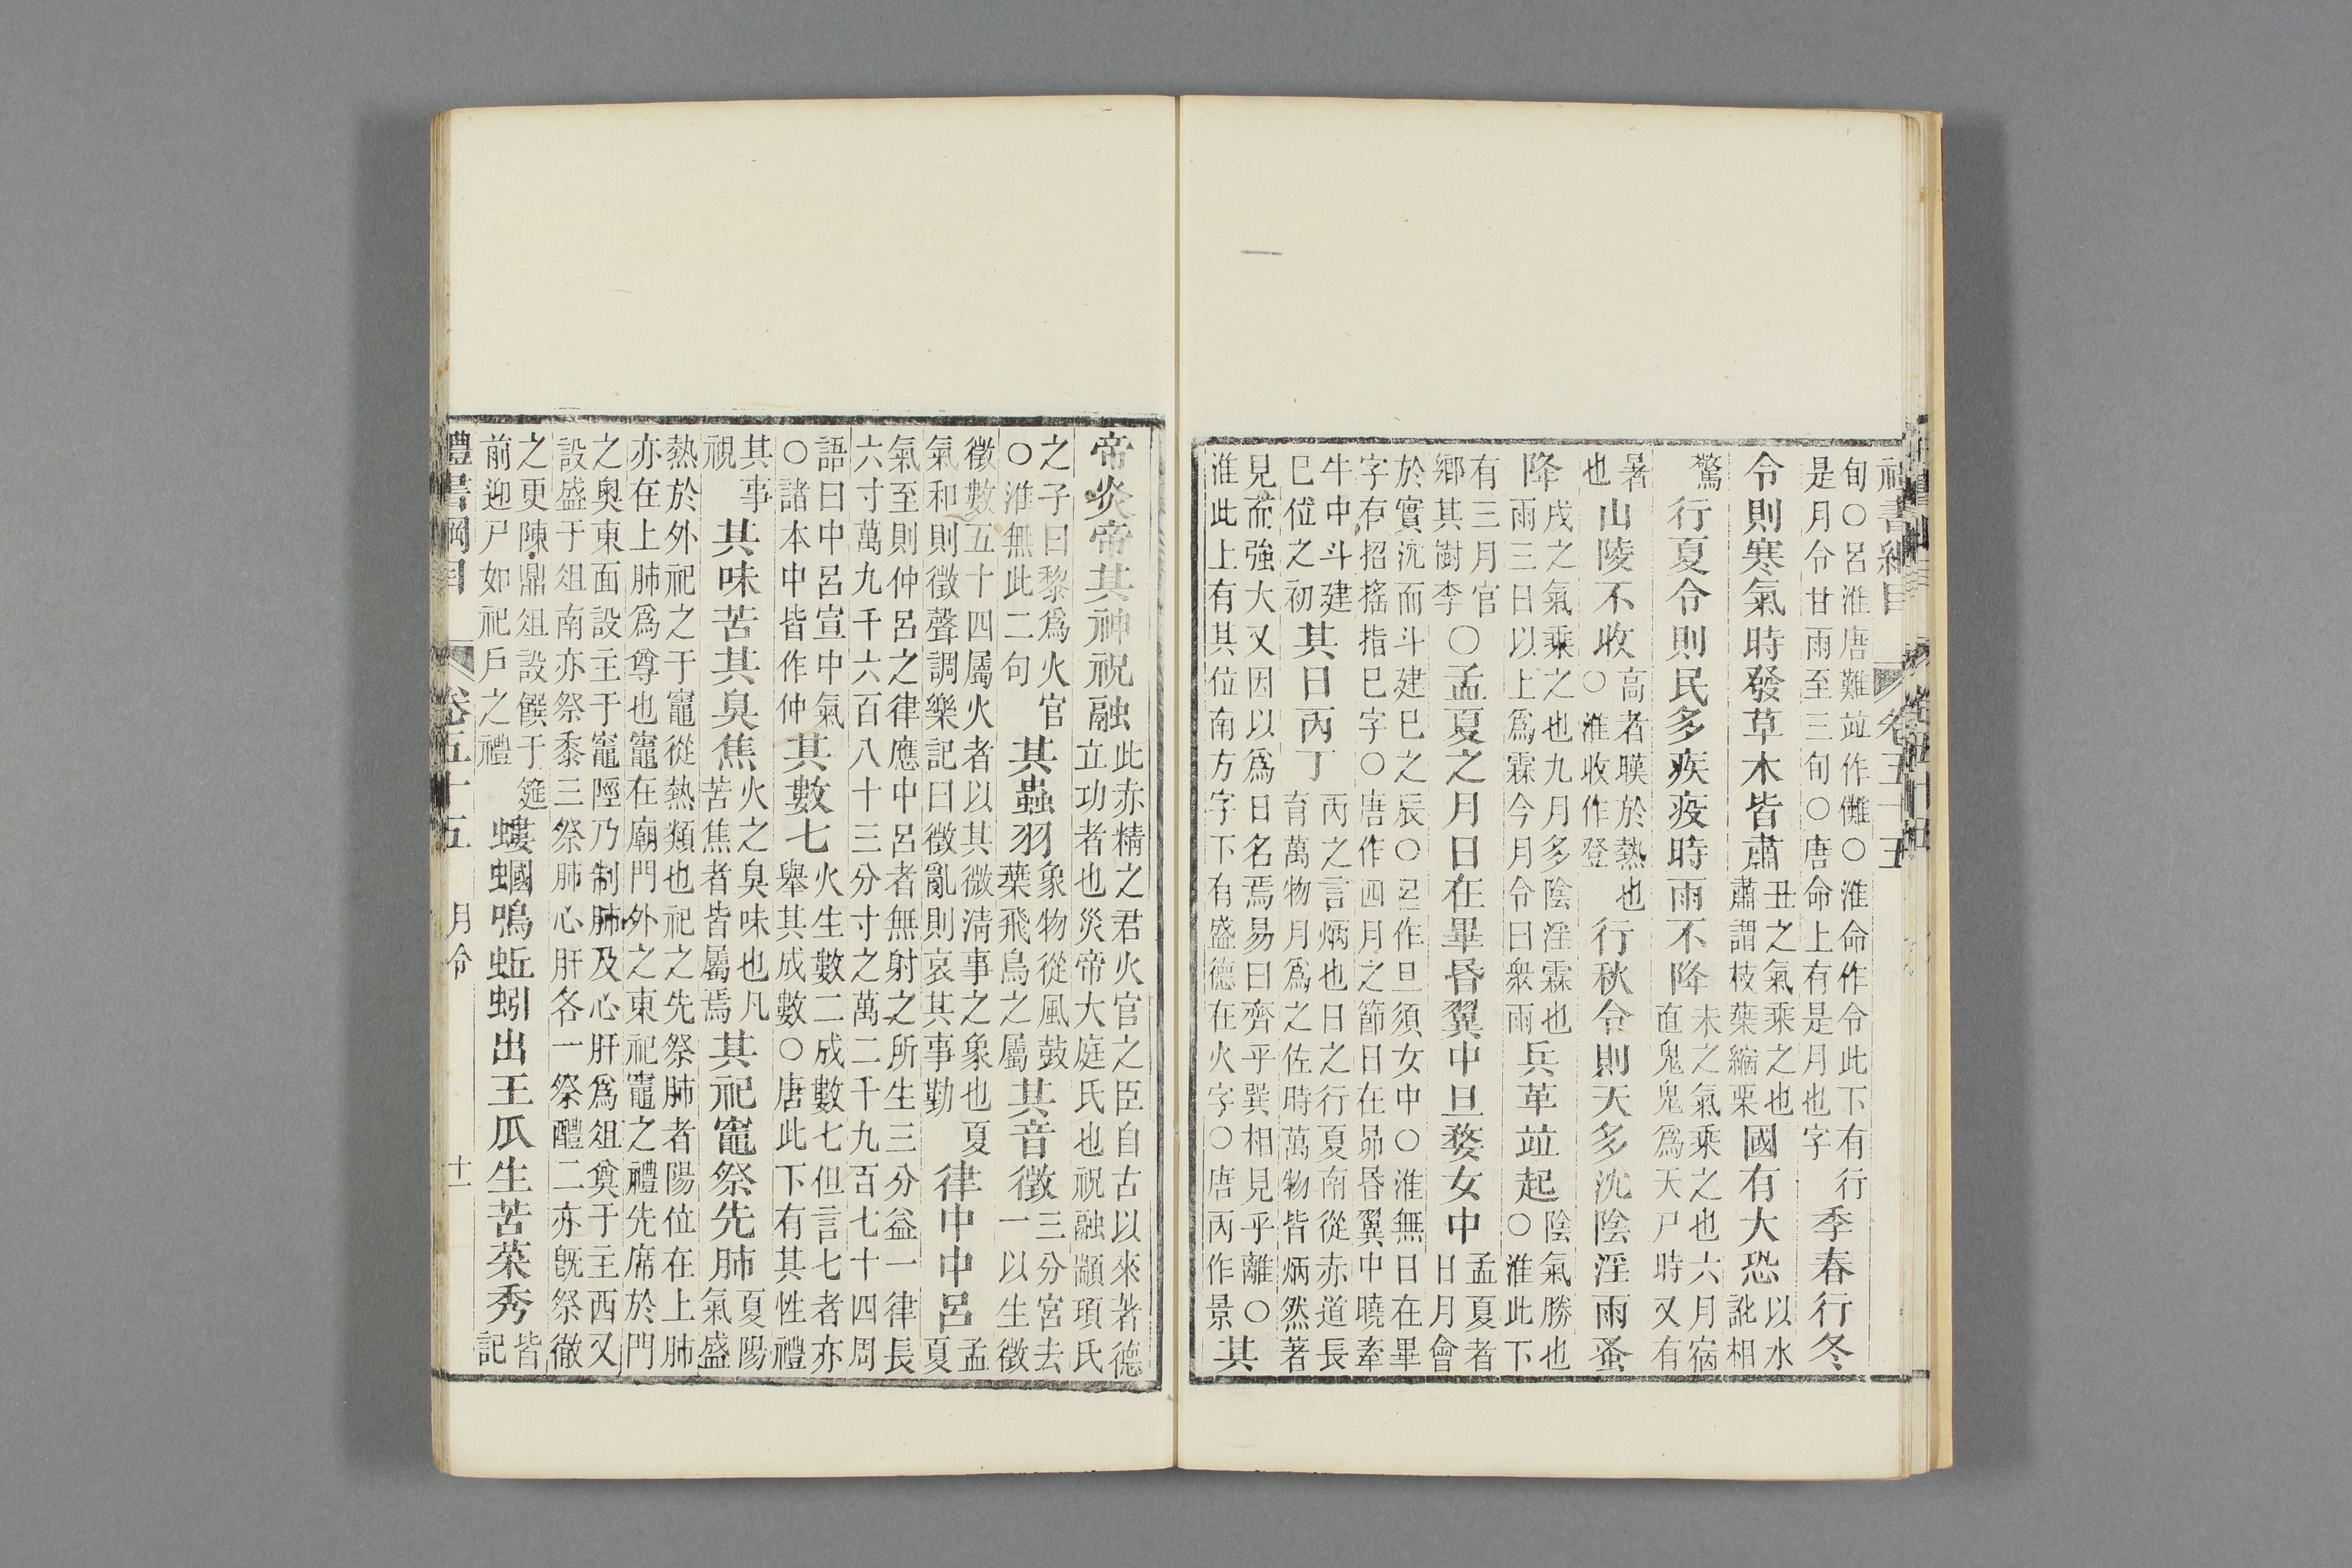 禮書綱目 卷五十五
旬○呂淮唐難竝作儺○淮命作令此下有行
是月令甘雨至三旬○唐命上有是月也字 季春行冬
令則寒氣時發草木皆肅丑之氣乘之也肅謂枝葉縮栗國有大恐以水訛相
驚 行夏令則民多疾疫時雨不降未之氣乘之也六月宿直鬼鬼爲天尸時又有
暑也山陵不收高者暵於熱也○淮收作登行秋令則天多沈陰淫雨蚤
降戌之氣乘之也九月多陰淫霖也雨三日以上爲霖今月令曰衆雨兵革竝起陰氣勝也○淮此下
有三月官鄉其樹李○孟夏之月日在畢昏翼中旦婺女中孟夏者日月會
於實沈而斗建巳之辰○呂作旦須女中○淮無日在畢
字有招搖指巳字○唐作四月之節日在昴昏翼中曉牽
牛中斗建巳位之初其日丙丁丙之言炳也日之行夏南從赤道長育萬物月爲之佐時萬物皆炳然著
見而強大又因以爲日名焉易曰齊乎巽相見乎離○
淮此上有其位南方字下有盛德在火字○唐丙作景其
帝炎帝其神祝融此赤精之君火官之臣自古以來著德立功者也災帝大庭氏也祝融顓頊氏
之子曰黎爲火官○淮無此二句其蟲羽象物從風鼓葉飛鳥之屬其音徵三分宮去一以生徵
徵數五十四屬火者以其微淸事之象也夏氣和則徵聲調樂記曰徵亂則哀其事勤律中中呂孟夏
氣至則仲呂之律應中呂者無射之所生三分益一律長
六寸萬九千六百八十三分寸之萬二千九百七十四周
語曰中呂宣中氣○諸本中皆作仲其數七火生數二成數七但言七者亦舉其成數○唐此下有其性禮
其事視其味苦其臭焦火之臭味也凡苦焦者皆屬焉其祀竈祭先肺夏陽氣盛
熱於外祀之于竈從熱類也祀之先祭肺者陽位在上肺
亦在上肺爲尊也竈在廟門外之東祀竈之禮先席於門
之奧東面設主于竈陘乃制肺及心肝爲俎奠于主西又
設盛于俎南亦祭黍三祭肺心肝各一祭醴二亦旣祭徹
之更陳鼎俎設饌于筵前迎尸如祀戶之禮螻蟈鳴蚯蚓出王瓜生苦菜秀皆記
禮書綱目 卷五十五 月令 十一